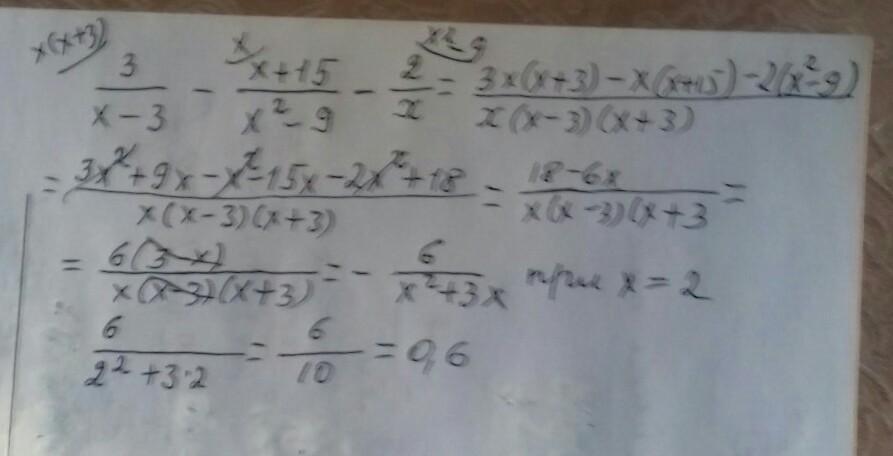 x(x+3) x x²-9
3/(x-3) - (x+15)/(x²-9) - 2/x = (3x(x+3) - x(x+15) - 2(x²-9))/(x(x-3)(x+3))
= (3x² + 9x - x² - 15x - 2x² + 18)/(x(x-3)(x+3)) = (18-6x)/(x(x-3)(x+3 =
= 6(3-x)/(x(x-3)(x+3)) = - 6/(x²+3x) при x = 2
6/(2²+3·2) = 6/10 = 0,6